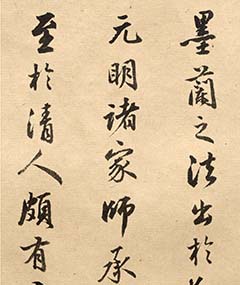 墨蘭之法出於
元明諸家師承
至於清人頗有